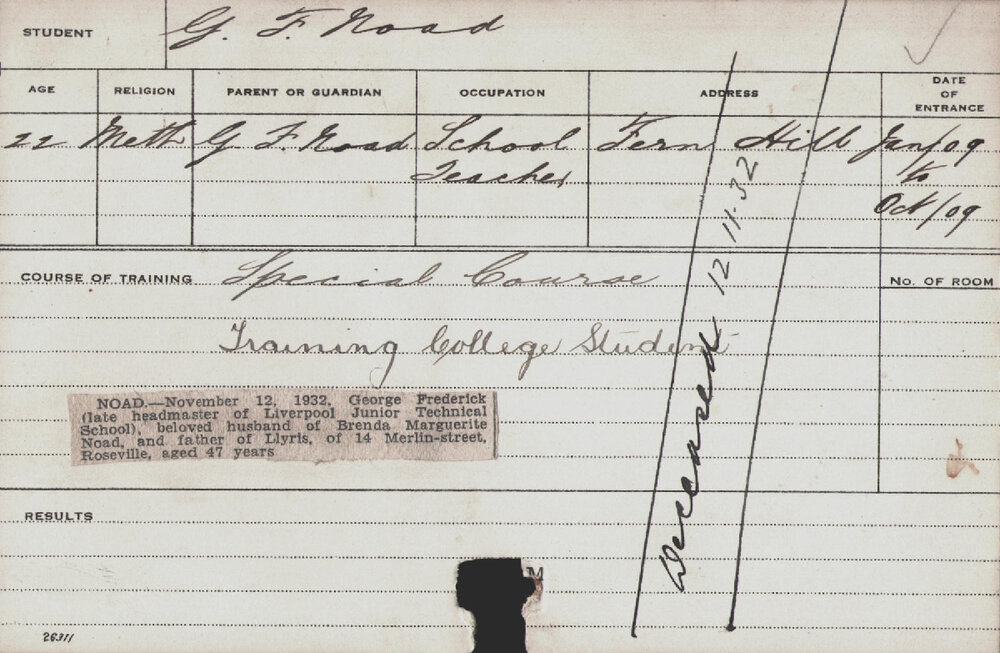 STUDENT G. F. Noad
AGE RELIGION PARENT OR GUARDIAN OCCUPATION ADDRESS DATE OF ENTRANCE
22 Meth G F. Noad School Teacher Fern Hill Jan/09 to Oct/09
COURSE OF TRAINING Special Course
No. OF ROOM
Training College Student
NOAD.—November 12, 1932, George Frederick
(late headmaster of Liverpool Junior Technical
School), beloved husband of Brenda Marguerite
Noad, and father of Llyris, of 14 Merlin-street,
Roseville, aged 47 years
Deceased 12 11-32
RESULTS
M
26311